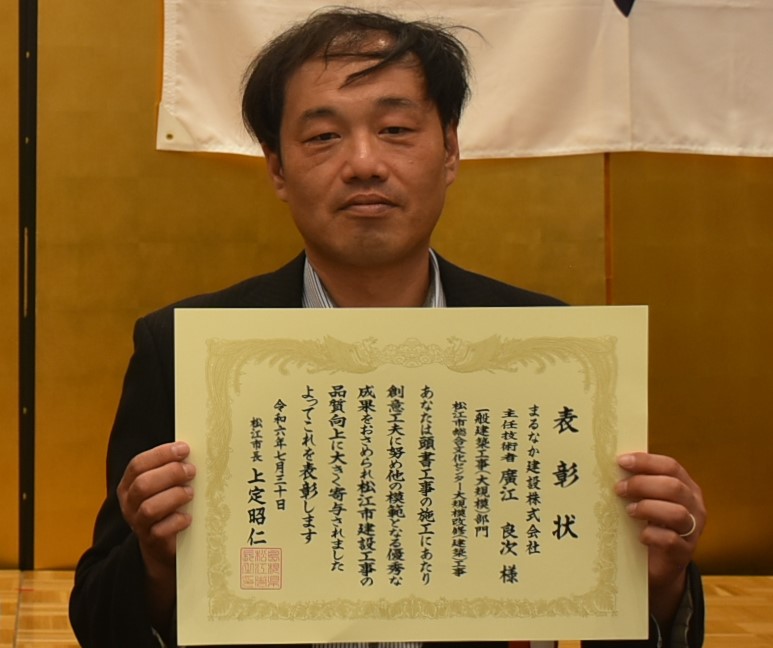 表彰状
まるなか建設株式会社
主任技術者 廣江 良次 様
一般建築工事(大規模)部門
松江市総合文化センター大規模改修(建築)工事
あなたは頭書工事の施工にあたり
創意工夫に努め他の模範となる優秀な
成果をおさめられ松江市建設工事の
品質向上に大きく寄与されました
よってこれを表彰します
令和六年七月三十日
松江市長 上定昭仁